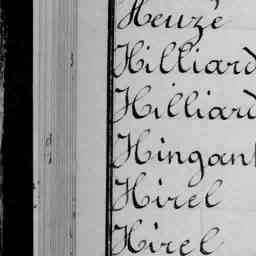 Heuzé
Hilliard
Hilliard
Hingant
Hirel
Hirel